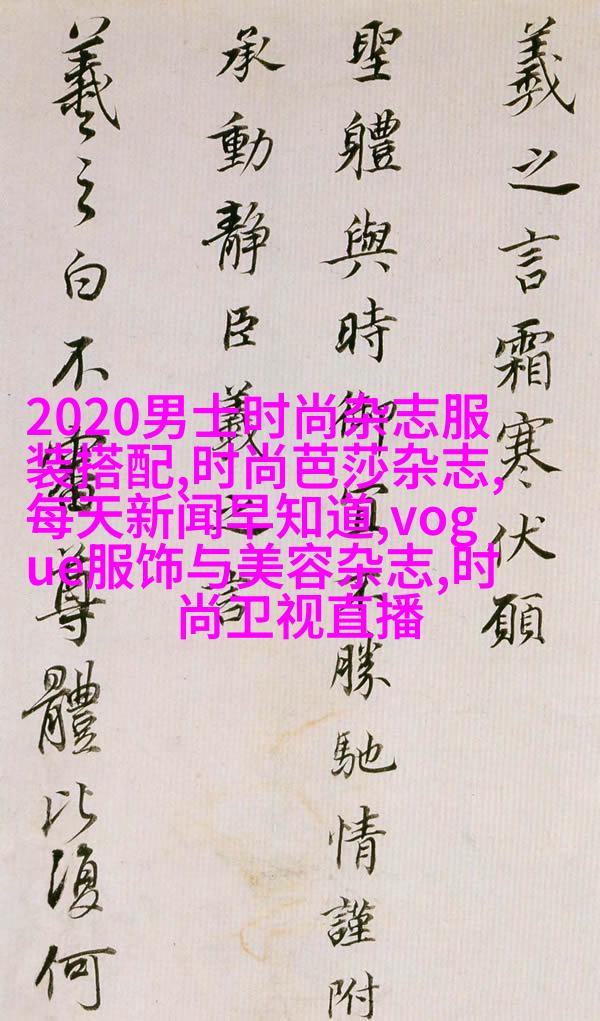 羲之言霜寒伏願
聖體與時御宜不勝馳情謹附
承動靜臣羲之言
羲之白不審尊體比復何
2020男士时尚杂志服
装搭配,时尚芭莎杂志,
每天新闻早知道,vog
ue服饰与美容杂志,时
尚卫视直播